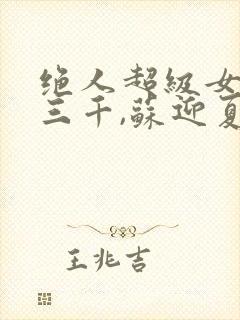 绝人超级女
三千,蘇迎夏
王兆吉